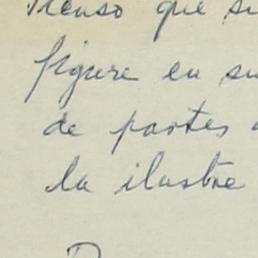 Pienso que si
figure en su
de partes
la ilustre